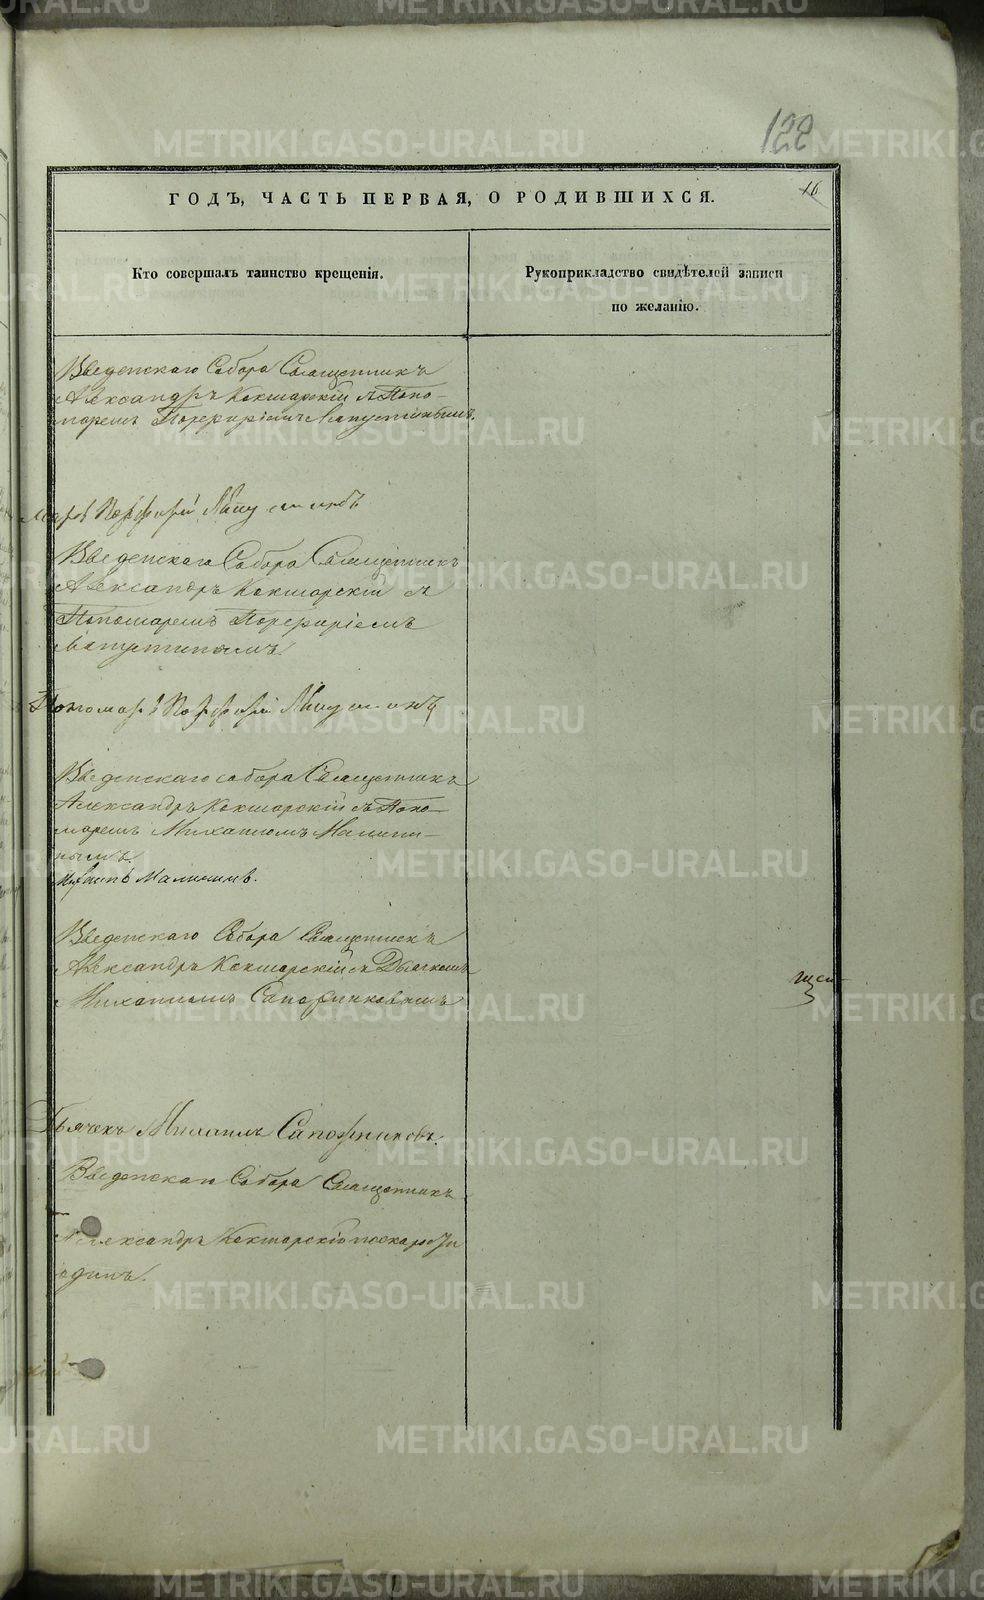 122
16
ГОДЪ, ЧАСТЬ ПЕРВАЯ, О РОДИВШИХСЯ.
Кто совершалъ таинство крещенія.
Рукоприкладство свидѣтелей записи
по желанію.
Введенскаго Собора Священникъ
Александръ Кокшарскій съ Поно-
маремъ Порфиріемъ Лапустинымъ.
Порфирій
Введенскаго Собора Священникъ
Александръ Кокшарскій съ
Пономаремъ Порфиріемъ
Лапустинымъ.
Пономарь Порфирій
Введенскаго собора Священникъ
Александръ Кокшарскій съ Поно-
маремъ Михаиломъ Малини-
нымъ.
Малининъ.
Введенскаго Собора Священникъ
Александръ Кокшарскій съ Дьячкомъ
Михаиломъ Сапожниковымъ
Дьячекъ Михаилъ Сапожниковъ.
Введенскаго Собора Священникъ
Александръ Кокшарскій
одинъ.
METRIKI.GASO-URAL.RU